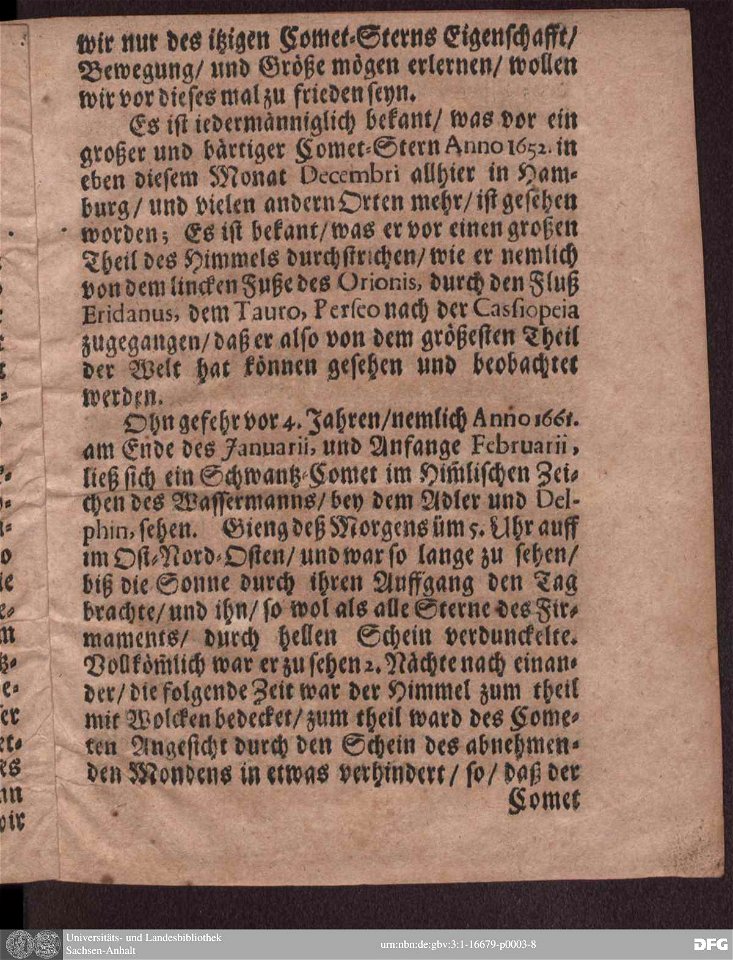 wir nur des itzigen Comet-Sterns Eigenschafft/
Bewegung/ und Größe mögen erlernen/ wollen
wir vor dieses mal zu frieden seyn.
Es ist iedermänniglich bekant/ was vor ein
großer und bärtiger Comet-Stern Anno 1652. in
eben diesem Monat Decembri allhier in Ham-
burg/ und vielen andern Orten mehr/ ist gesehen
worden; Es ist bekant/ was er vor einen großen
Theil des Himmels durchstrichen/ wie er nemlich
von dem lincken Fuße des Orionis, durch den Fluß
Eridanus, dem Tauro, Perseo nach der Cassiopeia
zugegangen/ daß er also von dem größesten Theil
der Welt hat können gesehen und beobachtet
werden.
Ohn gefehr vor 4. Jahren/ nemlich Anno 1661.
am Ende des Januarii, und Anfange Februarii,
ließ sich ein Schwantz-Comet im Him̃lischen Zei-
chen des Wassermanns/ bey dem Adler und Del-
phin, sehen. Gieng deß Morgens üm 5. Uhr auff
im Ost-Nord-Osten/ und war so lange zu sehen/
biß die Sonne durch ihren Auffgang den Tag
brachte/ und ihn/ so wol als alle Sterne des Fir-
maments/ durch hellen Schein verdunckelte.
Vollkom̃lich war er zu sehen 2. Nächte nach einan-
der/ die folgende Zeit war der Himmel zum theil
mit Wolcken bedecket/ zum theil ward des Come-
ten Angesicht durch den Schein des abnehmen-
den Mondens in etwas verhindert/ so/ daß der
Comet
Universitäts- und Landesbibliothek
Sachsen-Anhalt
urn:nbn:de:gbv:3:1-16679-p0003-8
DFG